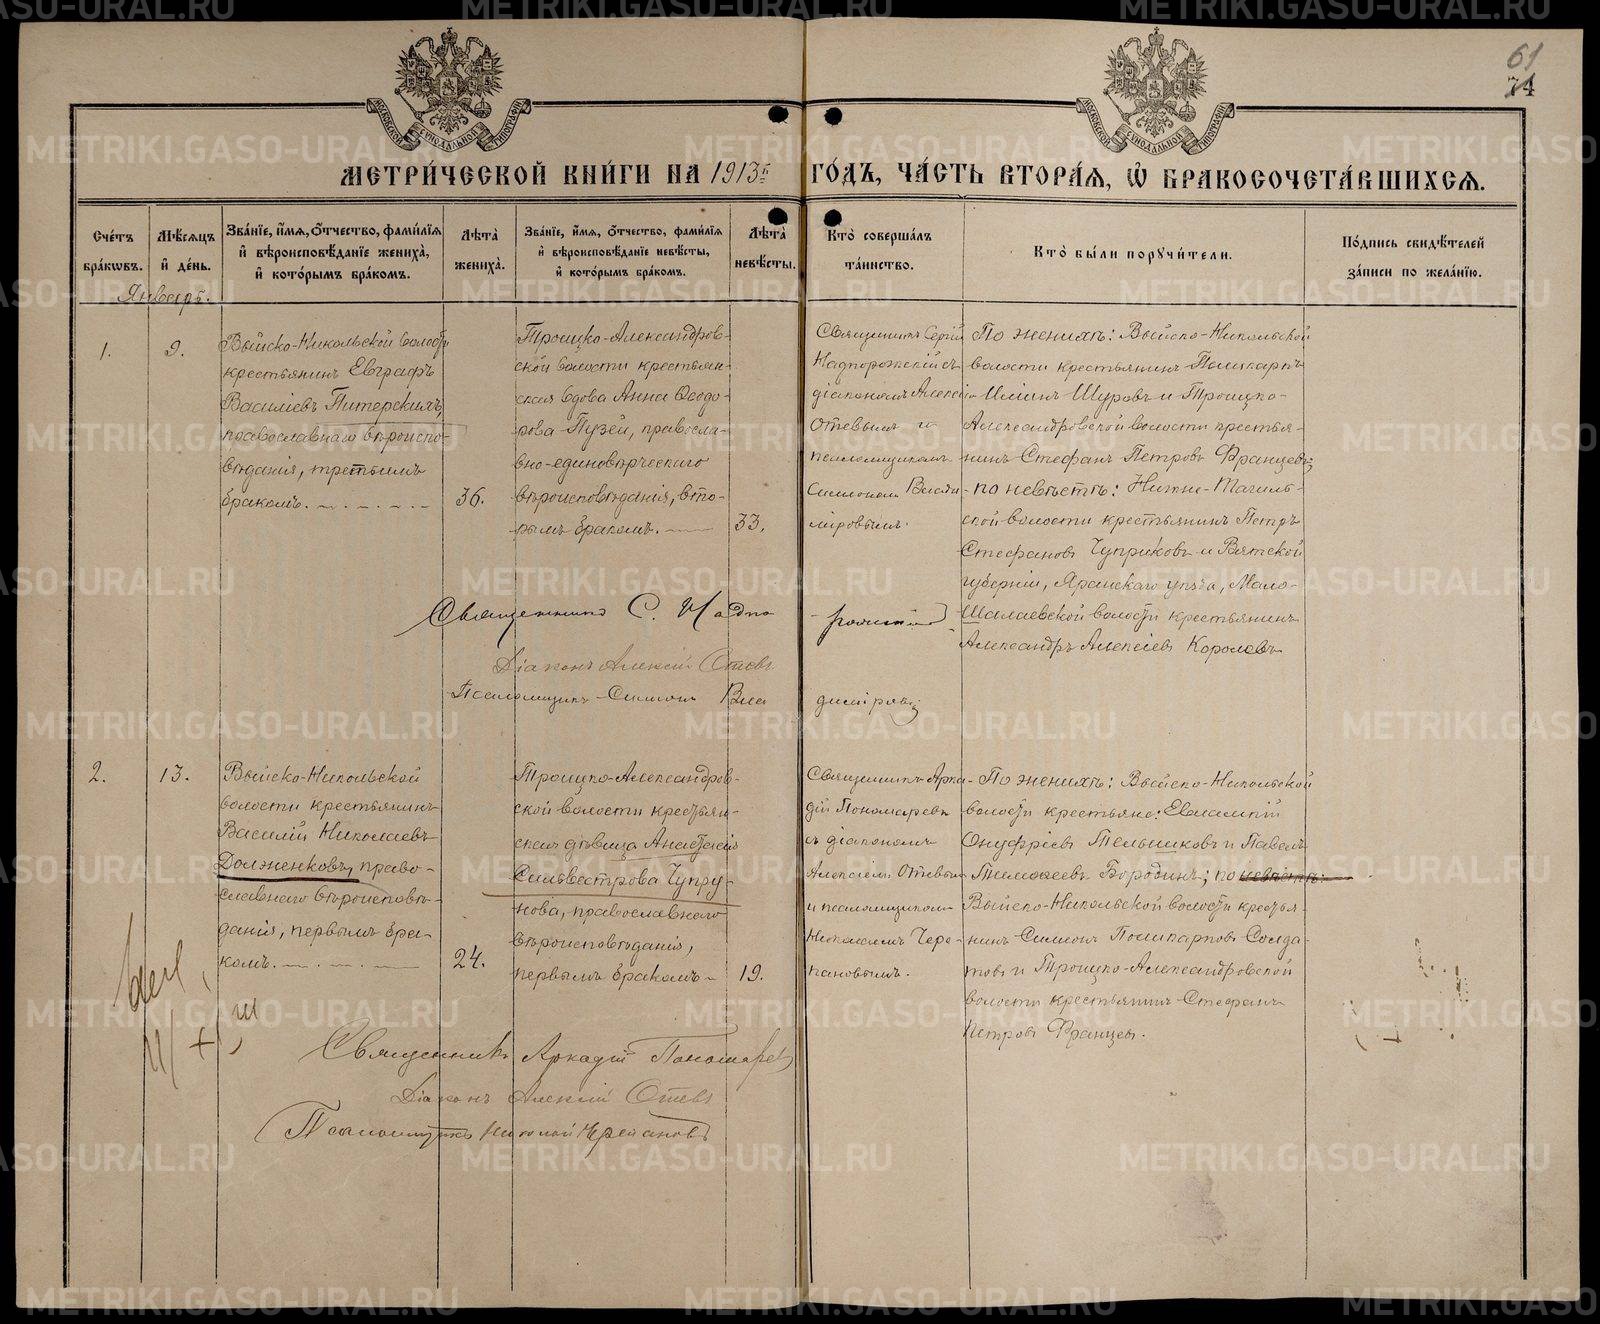 61
74
МЕТРИ́ЧЕСКОЙ КНИ́ГИ НА 1913й ГО́ДЪ, ЧА́СТЬ ВТОРА́Я, Ѡ БРАКОСОЧЕТА́ВШИХСЯ.
Сче́тъ бра́кωвъ.
Мѣ́сяцъ и҆ де́нь.
Зва́нїе, и҆́мя, ѻ҆́тчество, фами́лїя и҆ вѣроисповѣ́данїе жениха̀, и҆ кото́рымъ бра́комъ.
Лѣ́та жениха̀.
Зва́нїе, и҆́мя, ѻ҆́тчество, фами́лїя и҆ вѣроисповѣ́данїе невѣ́сты, и҆ кото́рымъ бра́комъ.
Лѣ́та невѣ́сты.
Кто̀ соверша́лъ та́инство.
Кто̀ бы́ли порꙋчи́тели.
По́дпись свидѣ́телей за́писи по жела́нїю.
Январь.
1.
9.
Выйско-Никольской волости
крестьянинъ Евграфъ
Василіевъ Питерскихъ,
православнаго вѣроиспо-
вѣданія, третьимъ
бракомъ.
36.
Троицко-Александров-
ской волости крестьян-
ская вдова Анна Ѳеодо-
рова Пузей, правосла-
вно-единовѣрческаго
вѣроисповѣданія, вто-
рымъ бракомъ.
33.
Священникъ Сергій
Надпорожскій съ
діакономъ Алексіе
Отевымъ и
псаломщикомъ
Симономъ Влади-
міровымъ.
По женихѣ: Выйско-Никольской
волости крестьянинъ Поликарпъ
Илiинъ Шуровъ и Троицко-
Александровской волости крестья-
нинъ Стефанъ Петровъ Францевъ;
по невѣстѣ: Нижне-Тагиль-
ской волости крестьянинъ Петръ
Стефановъ Чуприковъ и Вятской
губерніи, Яранскаго уѣзда, Мало-
Шалаевской волости крестьянинъ
Александръ Алексіевъ Королевъ
Священникъ С. Надпорожскій
Діаконъ Алексій Отевъ
Псаломщикъ Симонъ Владиміровъ
2.
13.
Выйско-Никольской
волости крестьянинъ
Василій Николаевъ
Долженковъ, право-
славнаго вѣроисповѣ-
данія, первымъ бра-
комъ.
24.
Троицко-Александров-
ской волости крестьян-
ская дѣвица Анастасія
Сильвестрова Чупру-
нова, православнаго
вѣроисповѣданія,
первымъ бракомъ
19.
Священникъ Арка-
дій Пономаревъ
съ діакономъ
Алексіемъ Отевымъ
и псаломщикомъ
Николаемъ Чере-
пановымъ.
По женихѣ: Выйско-Никольской
волости крестьяне: Евлампій
Онуфріевъ Тельшиковъ и Павелъ
Тимоѳеевъ Бородинъ; по невѣстѣ:
Выйско-Никольской волости крестья-
нинъ Симеонъ Поликарповъ Солда-
товъ и Троицко-Александровской
волости крестьянинъ Стефанъ
Петровъ Францевъ.
Священникъ Аркадій Пономаревъ
Діаконъ Алексій Отевъ
Псаломщикъ Николай Черепановъ